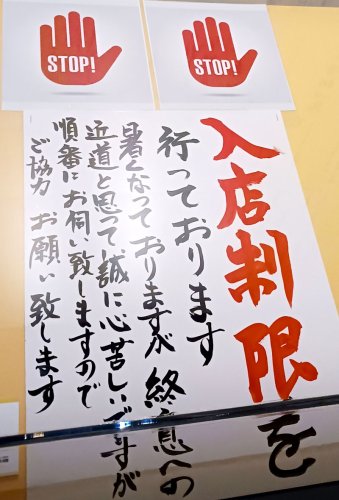 STOP!
STOP!
入店制限を
行っております
暑くなっておりますが終息への
近道と思って、誠に心苦しいですが
順番にお伺い致しますので
ご協力 お願い致します